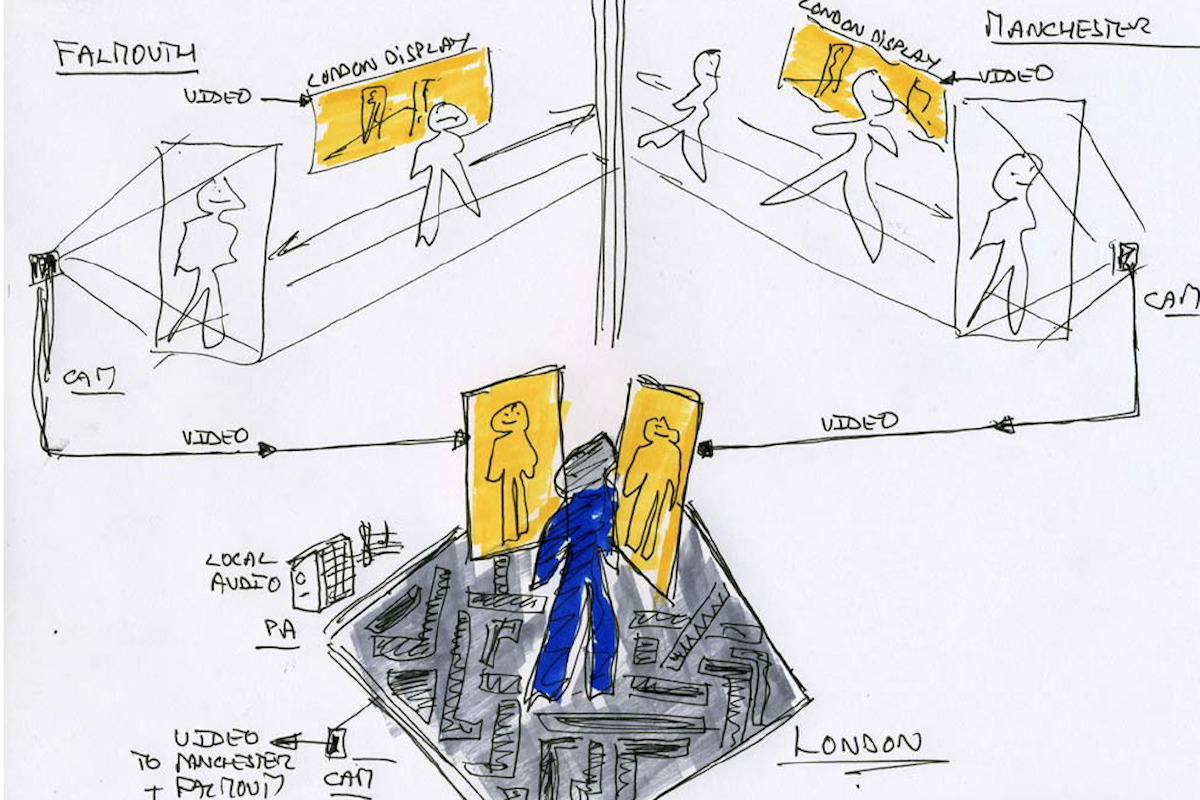 FALMOUTH
LONDON DISPLAY
VIDEO
LONDON DISPLAY
MANCHESTER
VIDEO
CAM
CAM
VIDEO
VIDEO
LOCAL
AUDIO
PA
VIDEO
TO MANCHESTER
+ FALMOUTH
CAM
LONDON